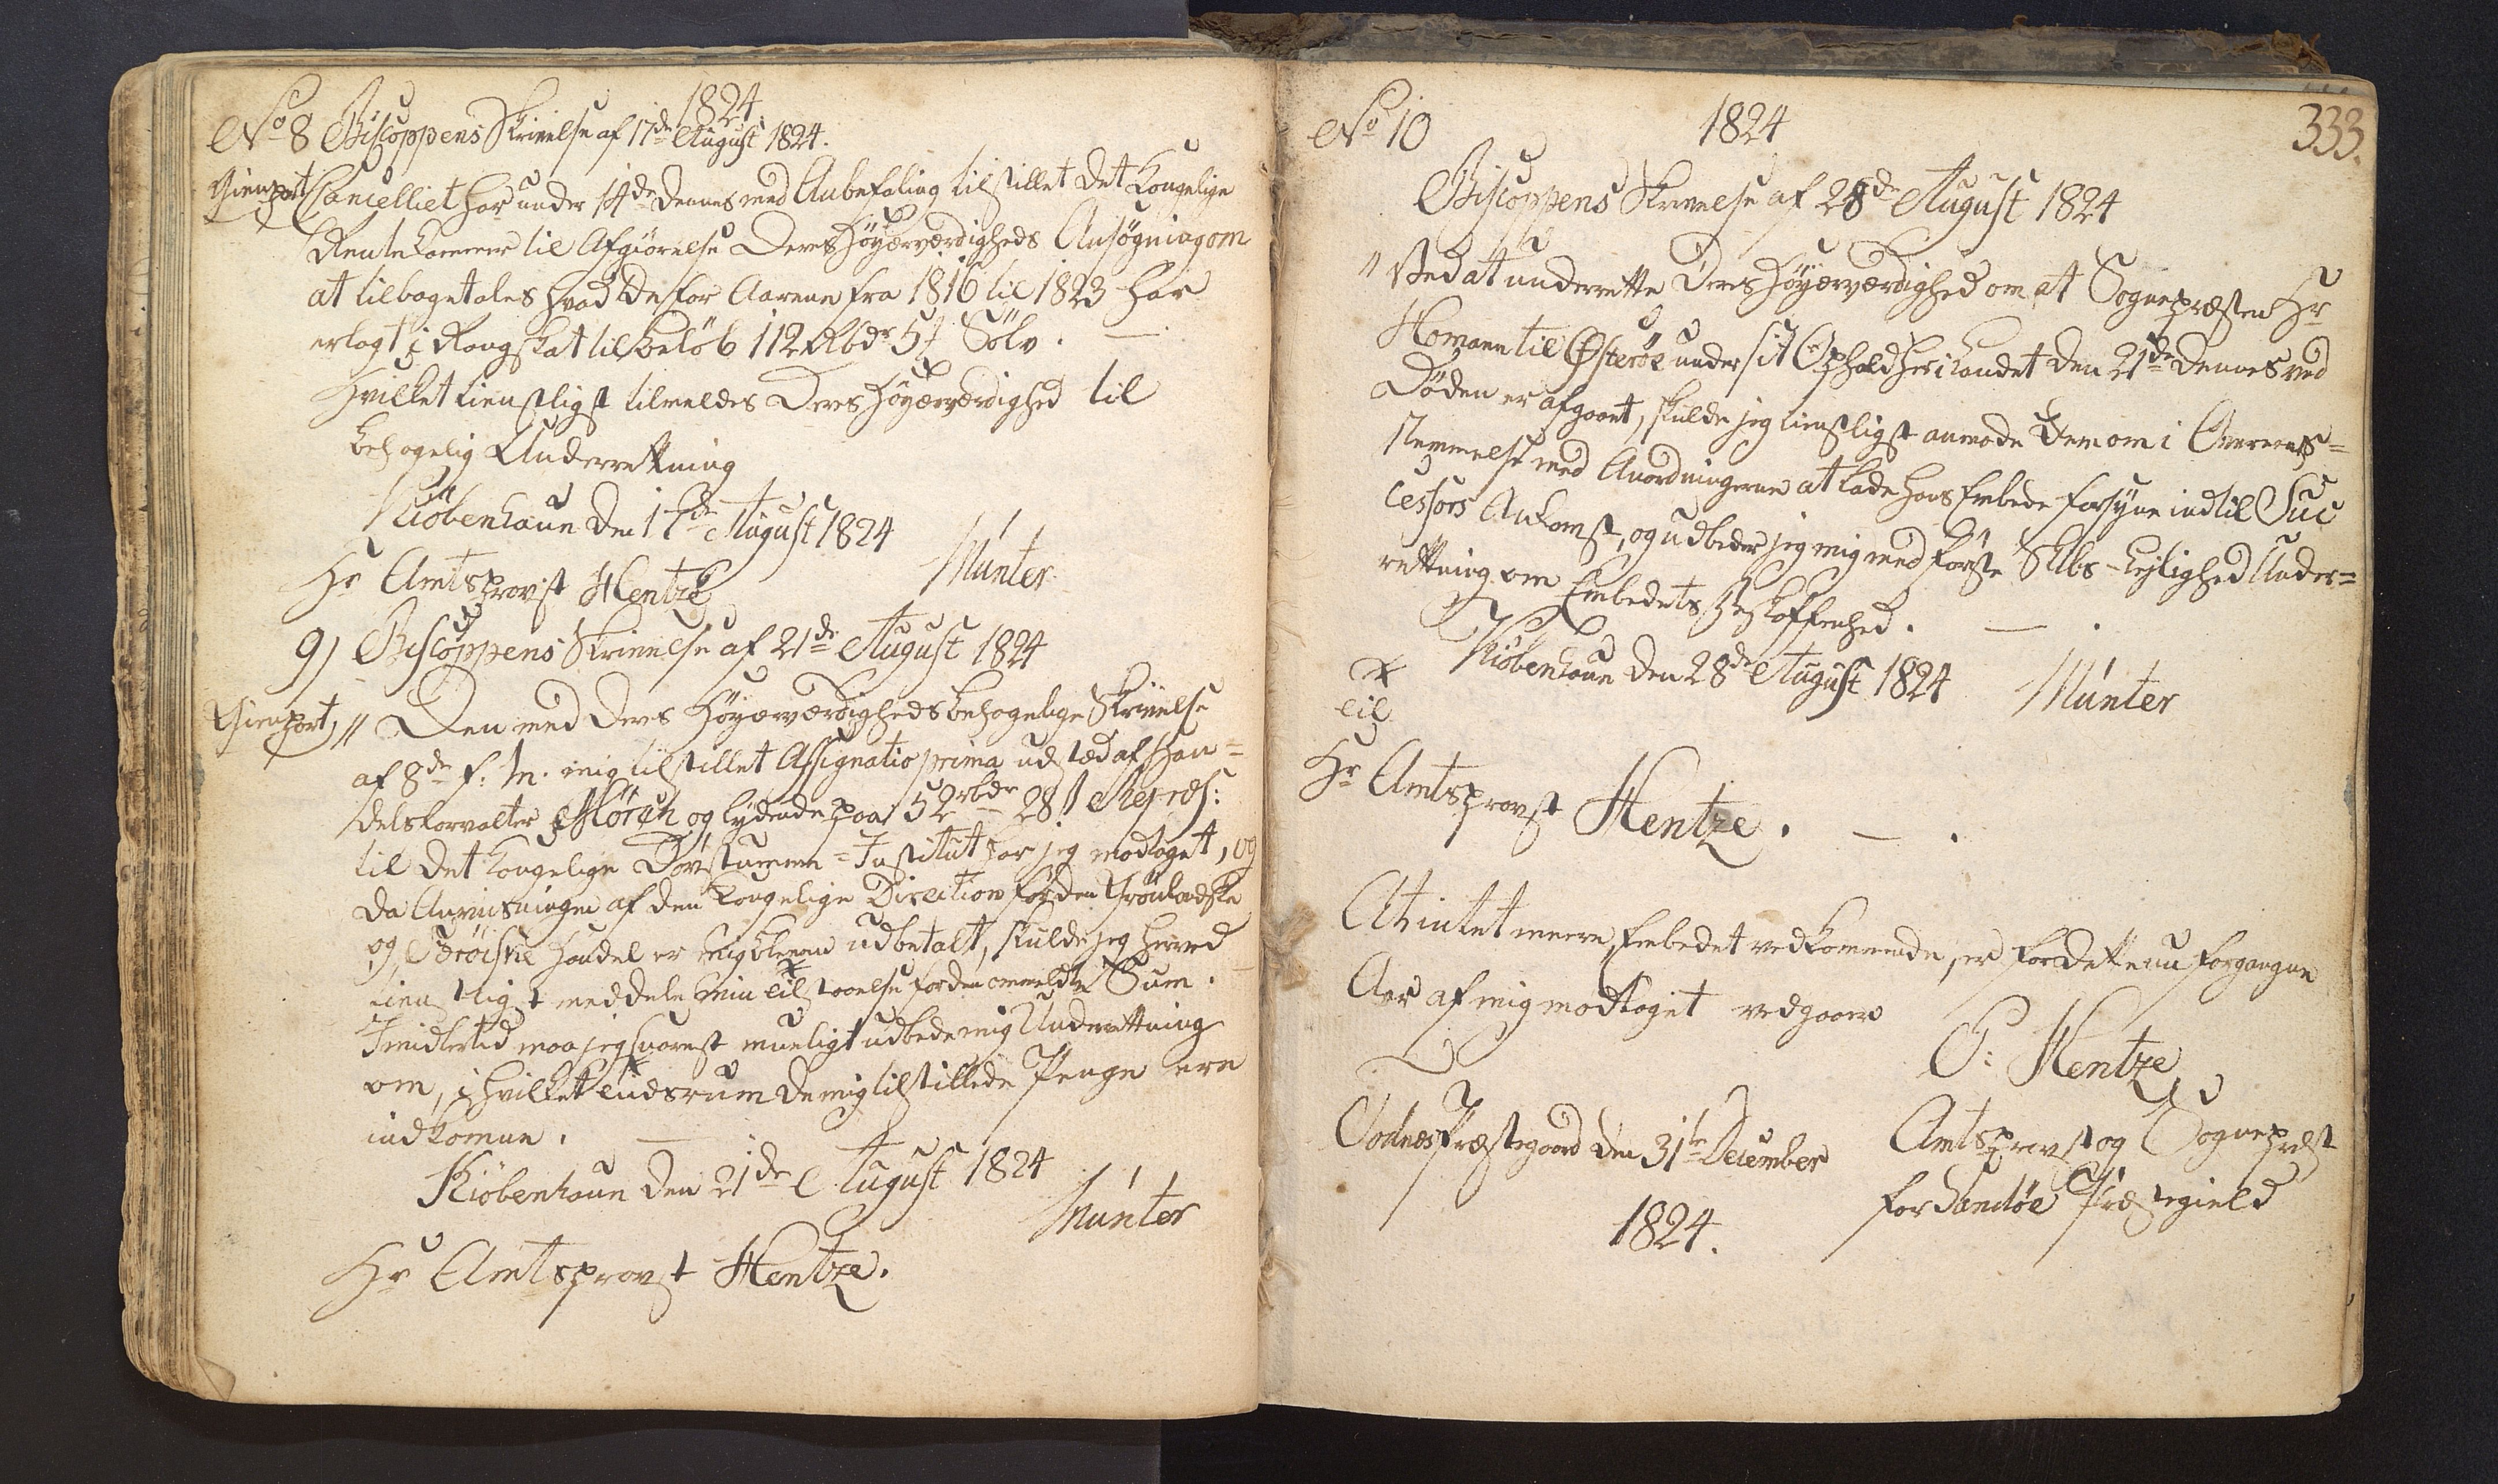 1824.
No 8 Biscoppens Skrivelse af 17de August 1824.
Gienpart Cancelliet har under 14de dennes med Anbefaling tilstillet det Kongelige
Rentekammer til Afgiörelse Deres Höyærværdigheds Ansögning om
at tilbagetales hvad De for Aarene fra 1816 til 1823 har
erlagt i Rangskat til Belöb 112 Rbdr 5 ʃ Sölv. —
Hvilket tienstligst tilmeldes Deres Höyærværdighed til
behagelig Underretning
Kiöbenhavn den 17de August 1824
Münter
Hr Amtsprovst Hentze
9) Biscoppens Skrivelse af 21de August 1824
Gienpart, " Den med Deres Höyærværdigheds behagelige Skrivelse
af 8de f. M. mig tilstillet Assignatio prima udstæd af Han=
delsforvalter Mörch og lydende paa 52 rbdr 28 ʃ
til det Kongelige Dövstumme=Institut har jeg modtaget, og
da Anviisningen af den Kongelige Direction for den Grönlandske
og Færöiske Handel er mig bleven udbetalt, skulde jeg herved
tienstligst meddele min tilstaaelse for den ommeldte Sum.
Imidlertid maa jeg snarest mueligt udbede mig Underretning
om, i hvilket tidsrum de mig tilstillede Penge ere
indkomne. —
Kiöbenhavn den 21de August 1824
Münter
Hr Amtsprovst Hentze.
No 10
1824
333.
Biscoppens Skrivelse af 28de August 1824
" Ved at underrette Deres Höyærværdighed om at Sognepræsten Hr
Homann til Österöe under sit Ophold her i Landet den 21de dennes ved
Döden er afgaaet, skulde jeg tienstligst anmode Dem om i Overeens=
stemmelse med Anordningerne at lade hans Embede forsyne indtil Suc
cessors Ankomst, og udbeder jeg mig med förste Skibs-Leylighed Under=
retning om Embedets Beskaffenhed. — .
Kiöbenhavn den 28de August 1824
Münter
til
Hr Amtsprovst Hentze. — .
At intet meere Embedet vedkommende, er for dette nu forgangne
Aar af mig modtaget vedgaaer
P: Hentze
Todnæs Præstegaard den 31te December
Amtsprovst og Sognepræst
1824.
for Sandöe Præstegield